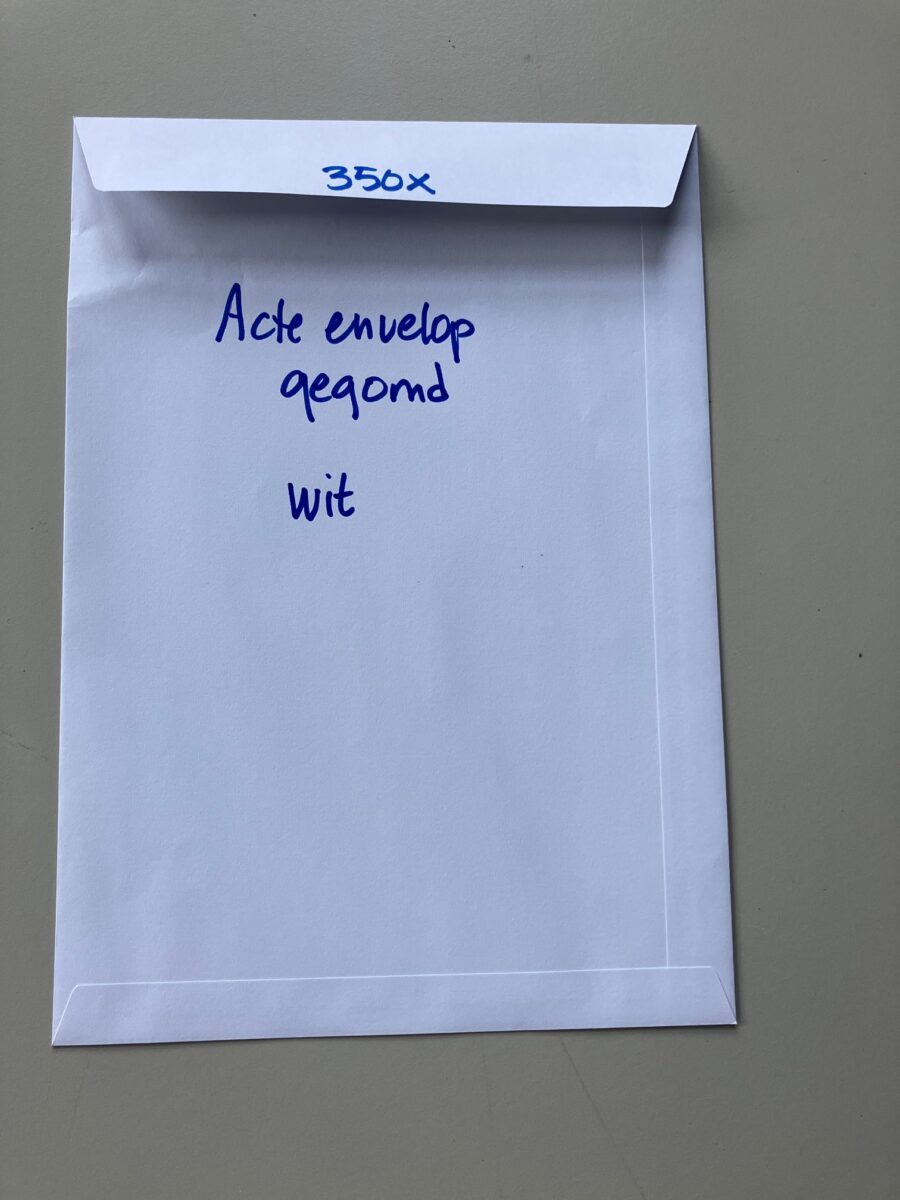 350x
Acte envelop
gegomd
wit